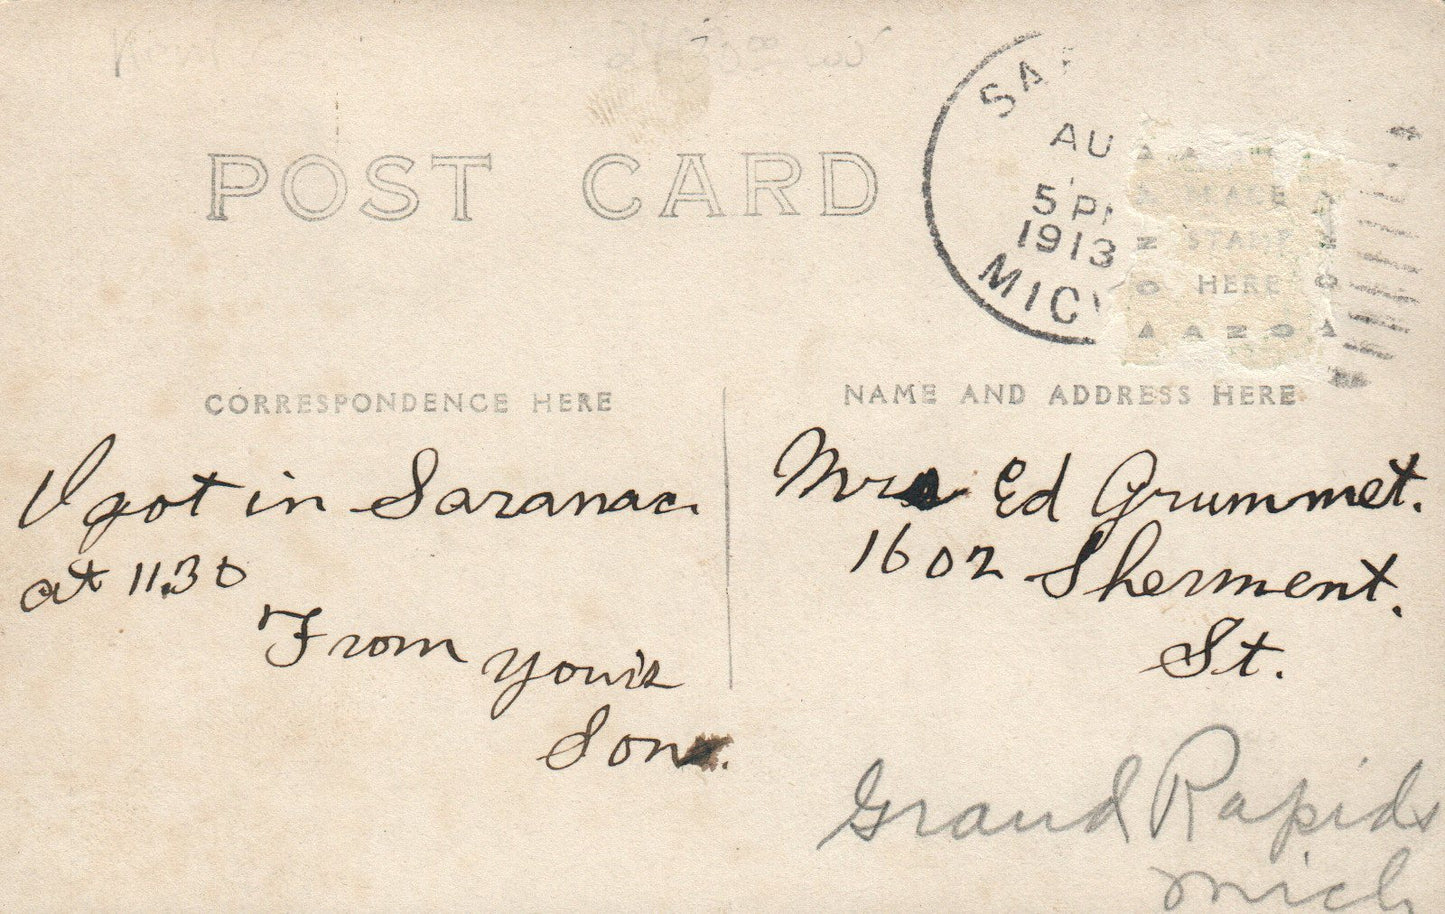 POST CARD
SA
AU
5 PM
1913
MICH
PLACE
STAMP
HERE
CORRESPONDENCE HERE
NAME AND ADDRESS HERE
I got in Saranac.
at 11.30
From your's
Son.
Mrs Ed Grummet.
1602 Sherment.
St.
Grand Rapids
Mich